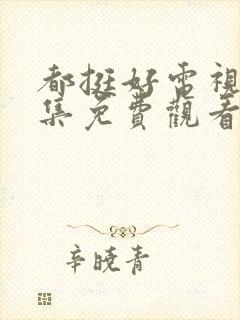 都挺好電視
集免費觀看
辛曉青